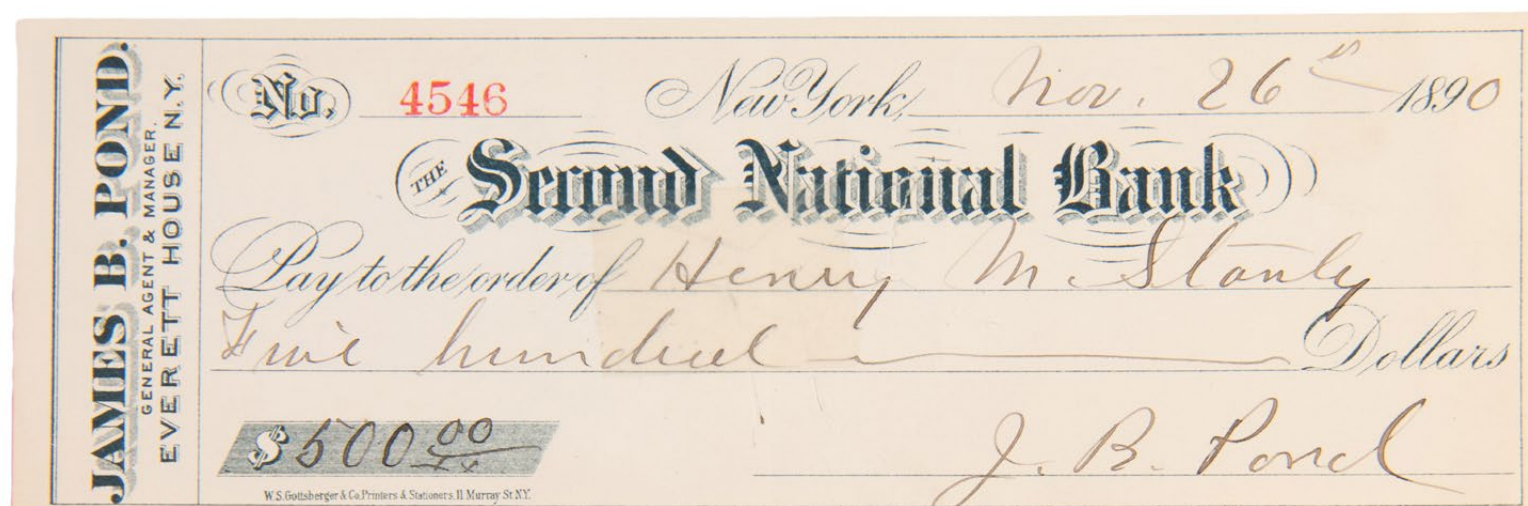 JAMES B. POND.
GENERAL AGENT & MANAGER.
EVERETT HOUSE N.Y.
No. 4546 New York, Nov. 26th 1890
THE Second National Bank
Pay to the order of Henry M. Stanly
Five hundred Dollars
$500 00/xx
J. B. Pond
W.S. Gottsberger & Co. Printers & Stationers. 11 Murray St. N.Y.